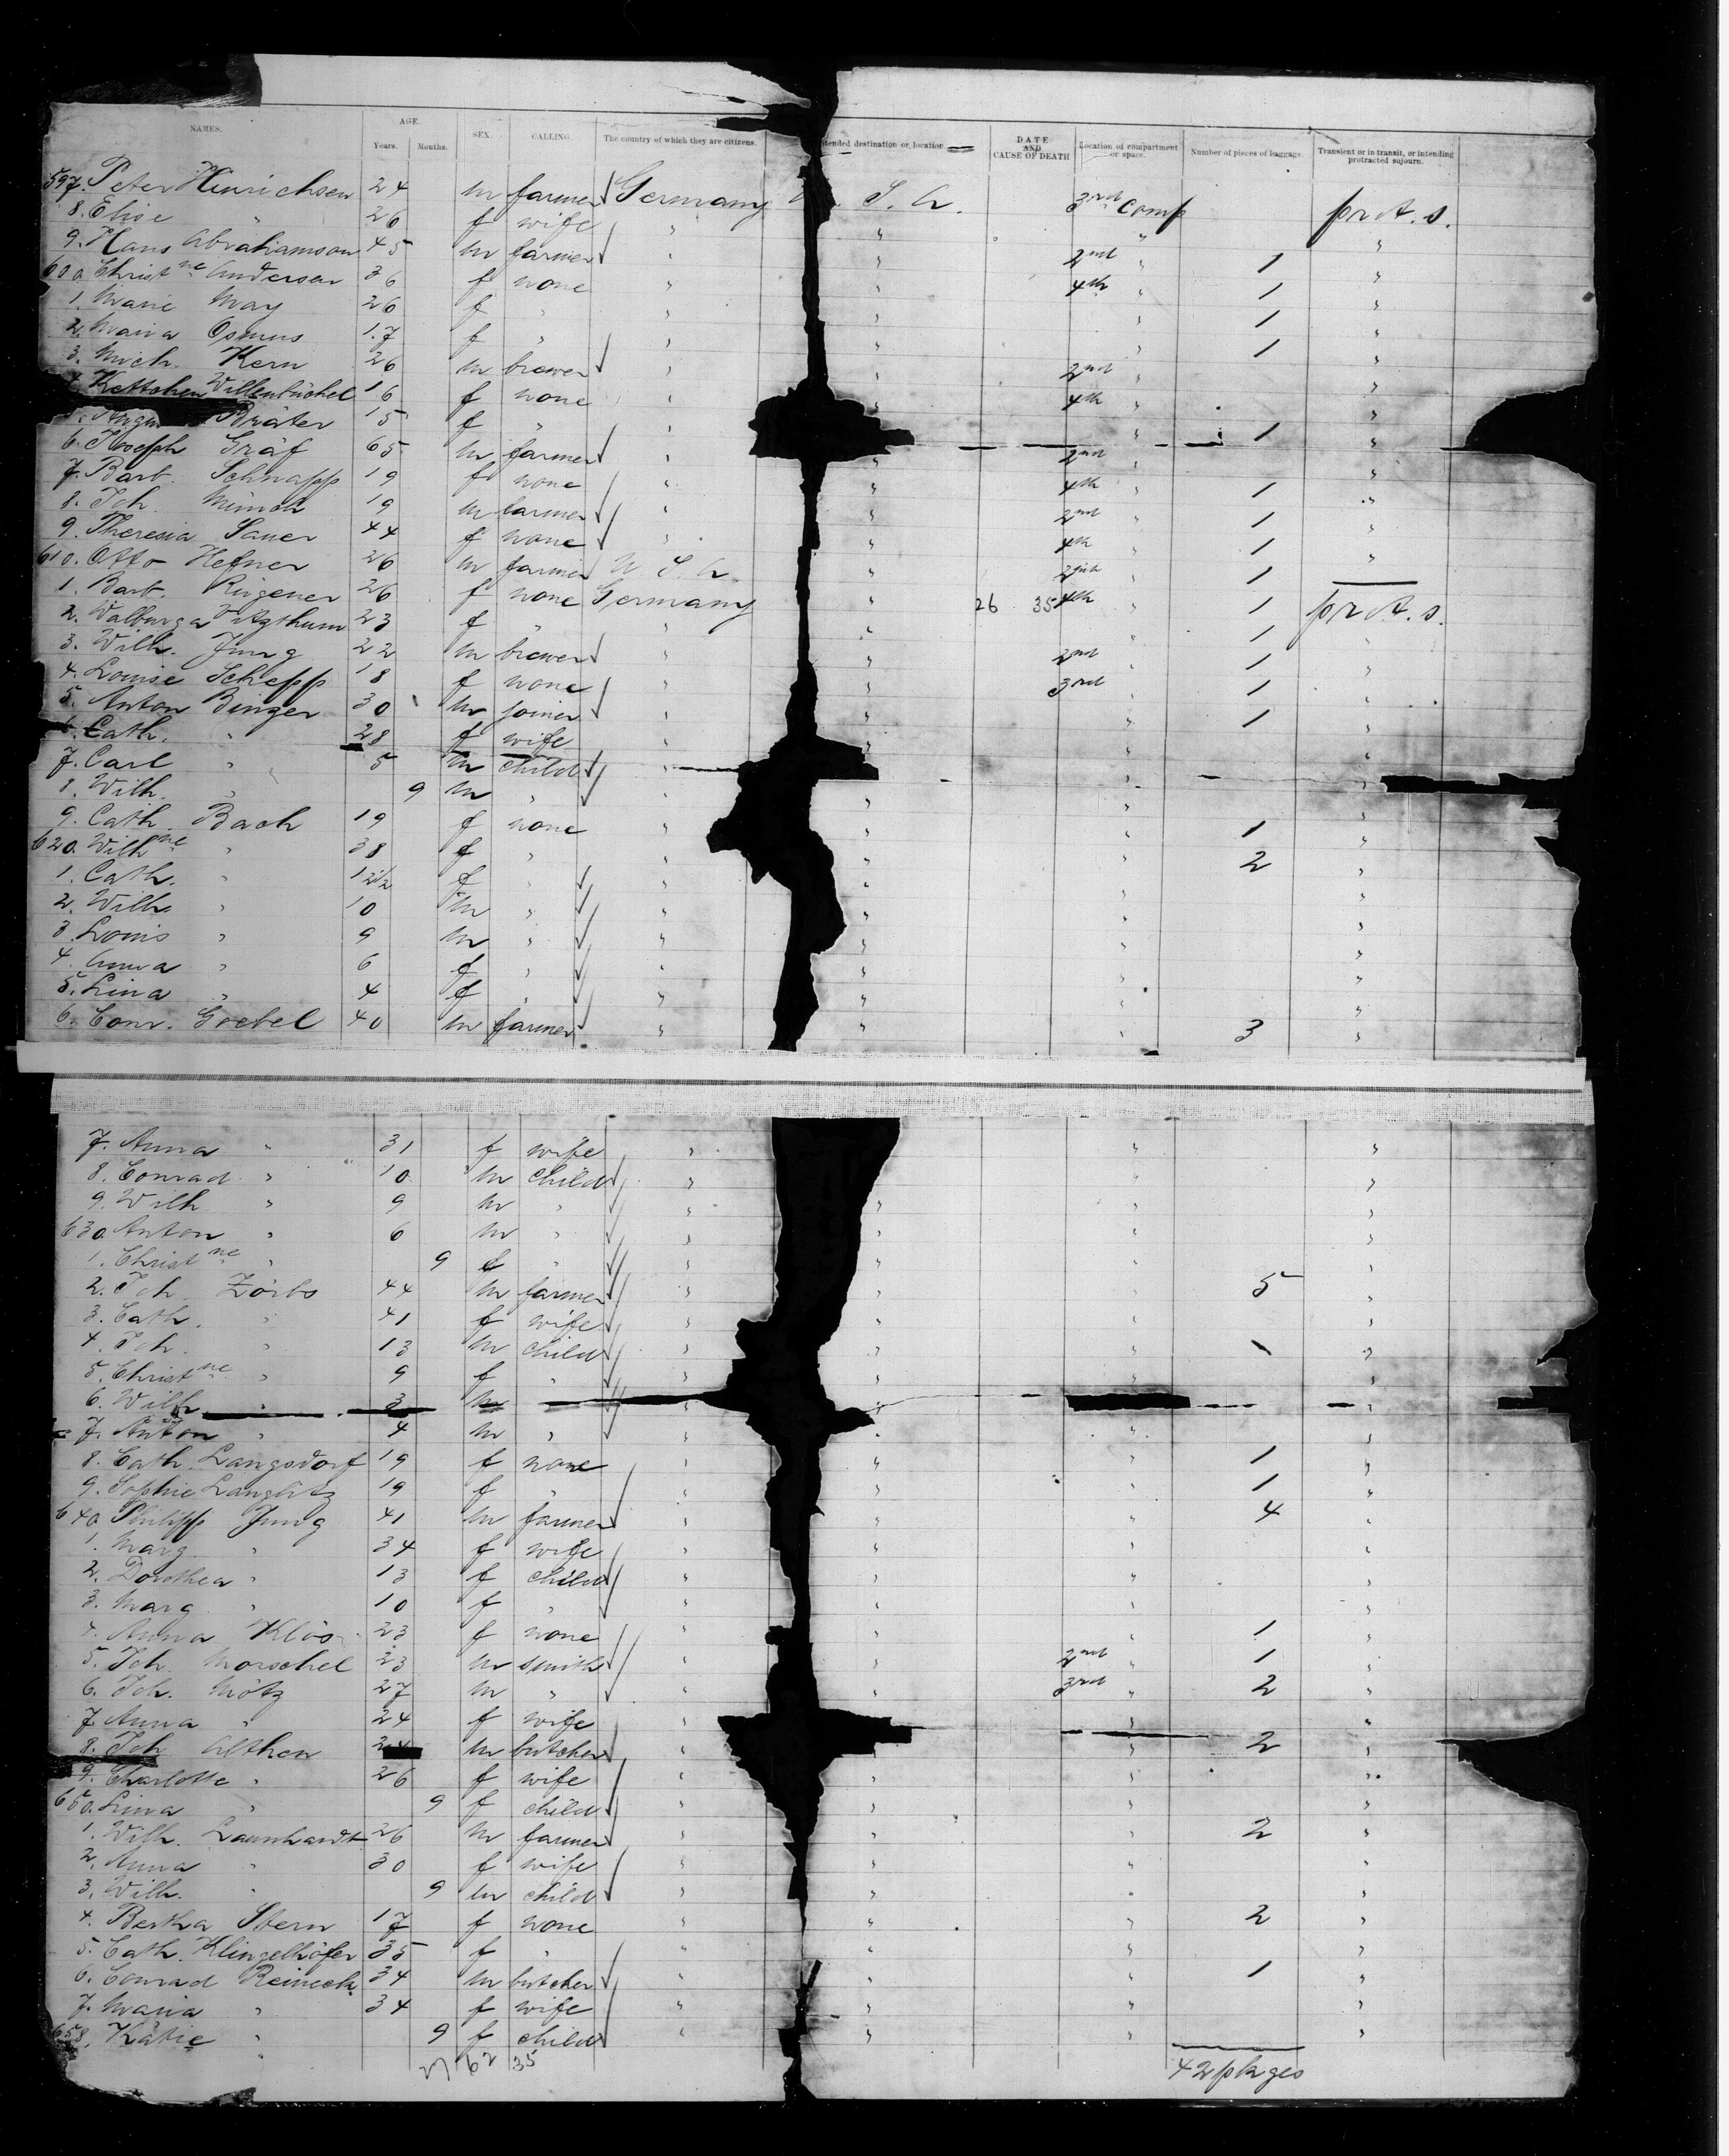 NAMES. AGE. Years. Months. SEX. CALLING. The country of which they are citizens. ntended destination or location DATE AND CAUSE OF DEATH Location of compartment or space. Number of pieces of baggage. Transient or in transit, or intending protracted sojourn.
597. Peter Hinrichsen 24 m farmer Germany . S. A. 3rd Comp prot. s.
8. Elise " 26 f wife " " " "
9. Hans Abrahamson 45 m farmer " " 2nd " 1 "
600 Christne Andersen 36 f none " " 4th " 1 "
1. Marie May 26 f " " " " 1 "
2. Maria Osmus 17 f " " " " 1 "
3. Mich. Kern 26 m brewer " " 2nd " "
4. Kettchen Willenbüchel 16 f none " " 4th " "
5. Bräter 15 f " " " " 1 "
6. Joseph Gräf 65 m farmer " " 2nd " "
7. Barb. Schnapp 19 f none " " 4th " 1 "
8. Joh. Münch 19 m farmer " " 2nd " 1 "
9. Theresia Sauer 44 f none " " 4th " 1 "
610. Otto Hefner 26 m farmer U. S. A. " 2nd " 1
1. Barb. Ringener 26 f none Germany " 26 35 4th " 1 prot. s.
2. Walburga Vitzthum 23 f " " " " 1 "
3. Wilh. Jung 22 m brewer " " 2nd " 1 "
4. Louise Schepp 18 f none " " 3rd " 1 "
5. Anton Binger 30 m joiner " " " 1 "
6. Cath. " 28 f wife " " "
7. Carl " 5 m child " " " "
8. Wilh. " 9 m " " " " "
9. Cath. Bach 19 f none " " " 1 "
620. Wilhne " 38 f " " " " 2 "
1. Cath. " 12 1/2 f " " " " "
2. Wilh. " 10 m " " " " "
3. Louis " 9 m " " " " "
4. Anna " 6 f " " " " "
5. Lina " 4 f " " " " "
6. Conr. Goebel 40 m farmer " " " 3 "
7. Anna " 31 f wife " " "
8. Conrad " 10 m child " " "
9. Wilh " 9 m " " " " "
630. Anton " 6 m " " " " "
1. Christne " 9 f " " " " "
2. Joh. Zörbs 44 m farmer " " " 5 "
3. Cath. " 41 f wife " " " "
4. Joh. " 13 m child " " " "
5. Christne " 9 f " " " " "
6. Wilh " 3 m " " "
7. Anton " 4 m " " " " "
8. Cath. Langsdorf 19 f none " " " 1 "
9. Sophie Langlitz 19 f " " " " 1 "
640 Philipp Jung 41 m farmer " " " 4 "
1. Marg. " 34 f wife " " " "
2. Dorothea " 13 f child " " " "
3. Marg. " 10 f " " " " "
4. Anna Klös 23 f none " " " 1 "
5. Joh. Morschel 23 m smith " " 2nd " 1 "
6. Joh. Mötz 27 m " " " 3rd " 2 "
7. Anna " 24 f wife " " "
8. Joh. Althen 24 m butcher " " 2 "
9. Charlotte " 26 f wife " " " "
650. Lina " 9 f child " " " "
1. Wilh. Launhardt 26 m farmer " " " 2 "
2. Anna " 30 f wife " " " "
3. Wilh. " 9 m child " " " "
4. Bertha Stern 17 f none " " " 2 "
5. Cath. Klingelhöfer 35 f " " " " "
6. Conrad Reineck 34 m butcher " " " 1 "
7. Maria " 34 f wife " " " "
658. Kätie " 9 f child " " " "
27 62 35 42 pkges